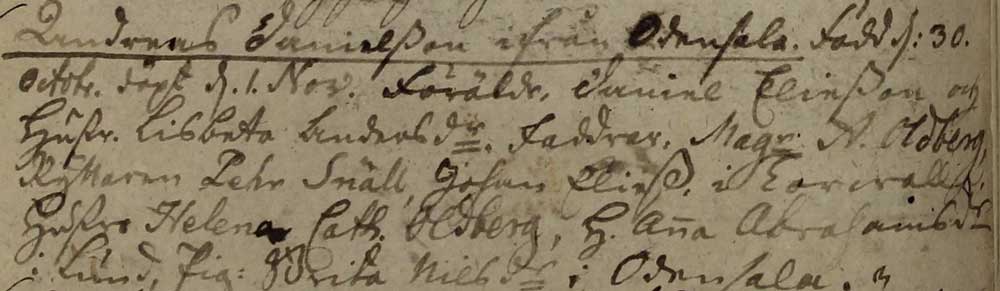 Andreas Danielsson ifrån Odensala. Född d: 30.
Octobr. döpt d. 1. Nov. Föräldr. Daniel Eliesson och
Hustr. Lisbeta Andersdr. Faddrar. Magr. A. Oldberg,
Ryttaren Pehr Snäll, Johan Eliess. i
Hustru Helena Cath. Oldberg, H. Aña Abrahamsdr
i Lund, Pig: Brita Nilsdr i Odensala.